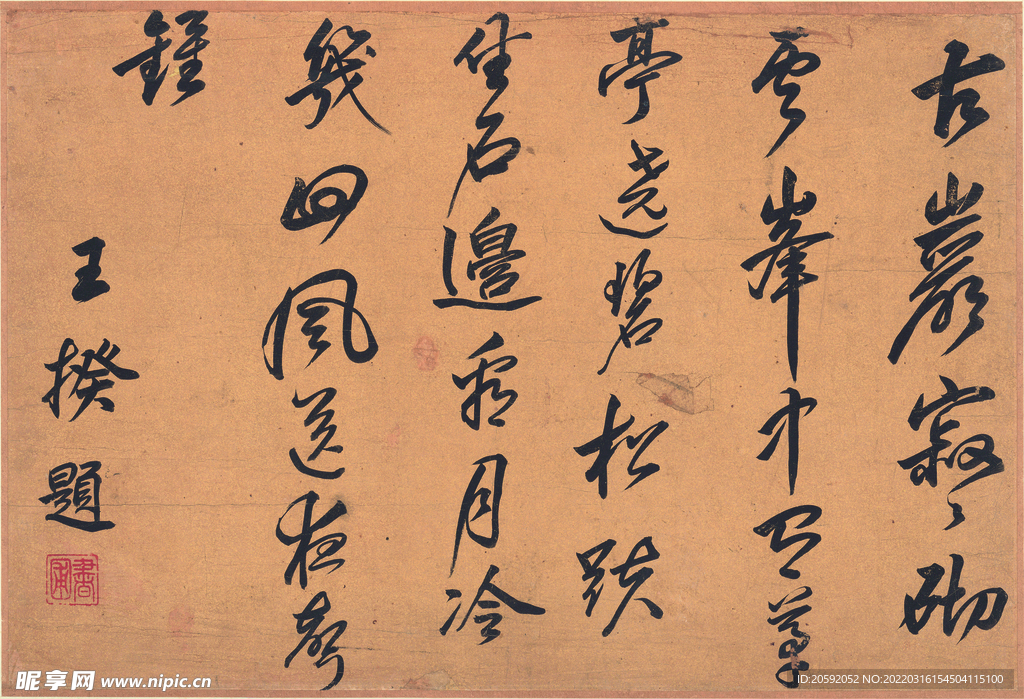 古巖寂〻砌
雲峯中有草
亭遶碧松趺
坐石邊看月冷
幾回風送夜聲
鐘
王揆題
昵享网 www.nipic.cn
ID:20592052 NO:20220316154504115100